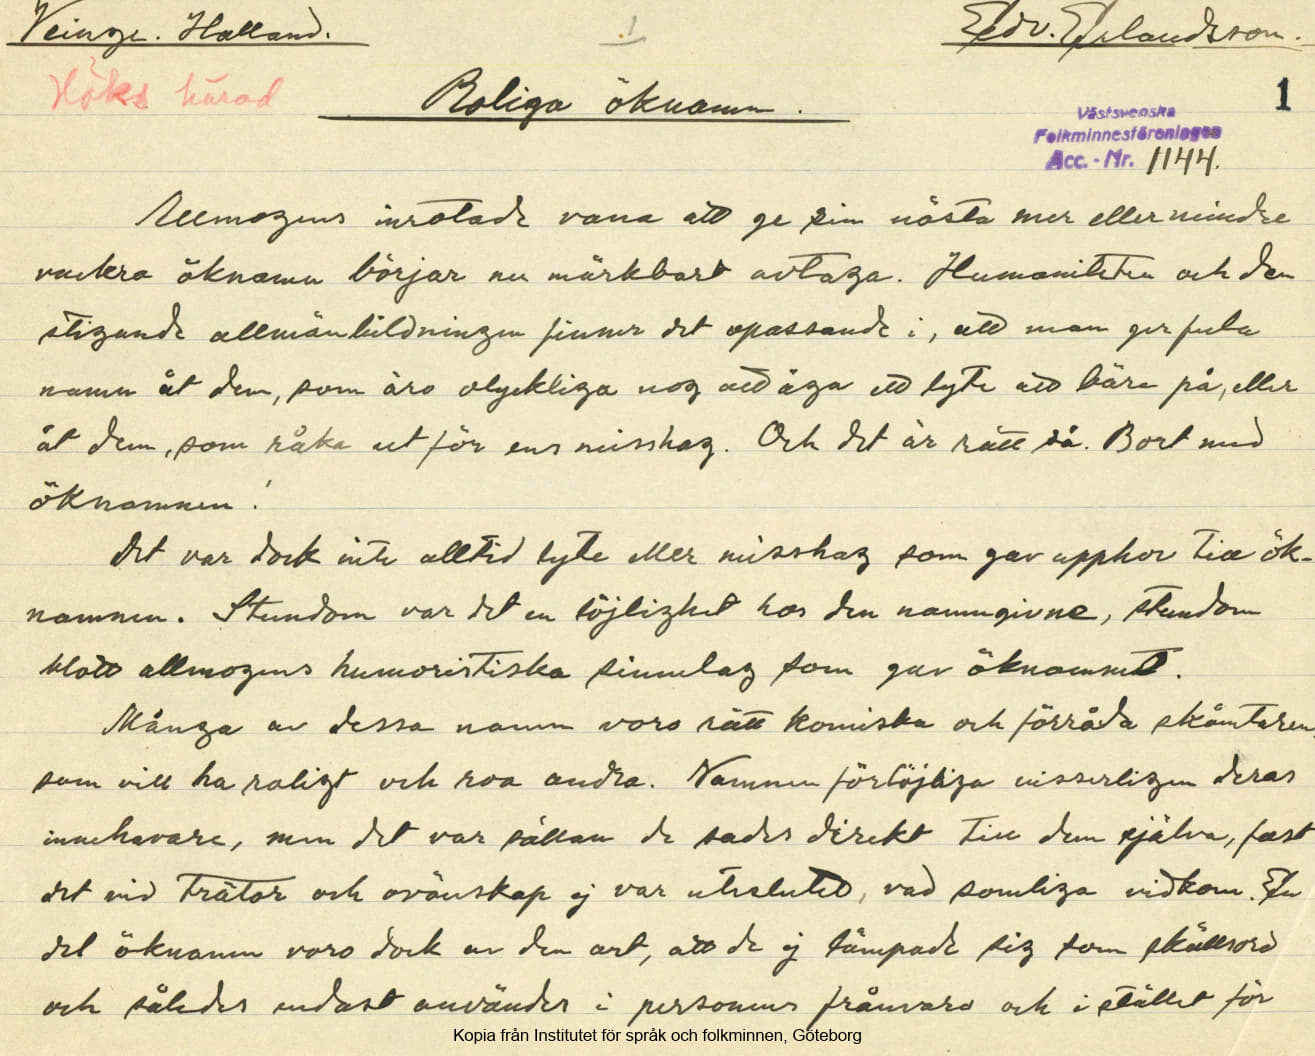 Veinge. Halland.
1
Edv. Erlandsson.
Höks härad
Roliga öknamn.
1
Västsvenska
Folkminnesföreningen
Acc. - Nr. 1144.
Allmogens inrotade vana att ge sin nästa mer eller mindre
vackra öknamn börjar nu märkbart avtaga. Humaniteten och den
stigande allmänbildningen finner det opassande i, att man ger fula
namn åt dem, som äro olyckliga nog att äga ett lyte att bära på, eller
åt dem, som råka ut för ens misshag. Och det är rätt så. Bort med
öknamnen!
Det var dock inte alltid lyte eller misshag som gav upphov till ök-
namnen. Stundom var det en löjlighet hos den namngivne, stundom
blott allmogens humoristiska sinnelag som gav öknamnet.
Många av dessa namn voro rätt komiska och förråda skämtaren,
som vill ha roligt och roa andra. Namnen förlöjliga visserligen deras
innehavare, men det var sällan de sades direkt till dem själva, fast
det vid trätor och ovänskap ej var uteslutet, vad somliga vidkom. En
del öknamn voro dock av den art, att de ej lämpade sig som skällsord
och således endast användes i personens frånvaro och i stället för
Kopia från Institutet för språk och folkminnen, Göteborg